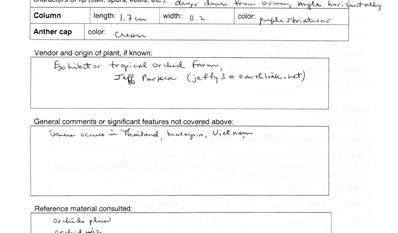 characters of lip (call, spurs, keels, etc.): drops down from ovary, angle horizontally
Column length: 1.7cm width: 0.2 color: purple striations
Anther cap color: Cream
Vendor and origin of plant, if known:
Exhibitor tropical orchid Farm,
Jeff Parker (jeffy3@earthlink.net)
General comments or significant features not covered above:
Genus occurs in Thailand, Malaysia, Vietnam
Reference material consulted:
orchids plus
orchid wiz